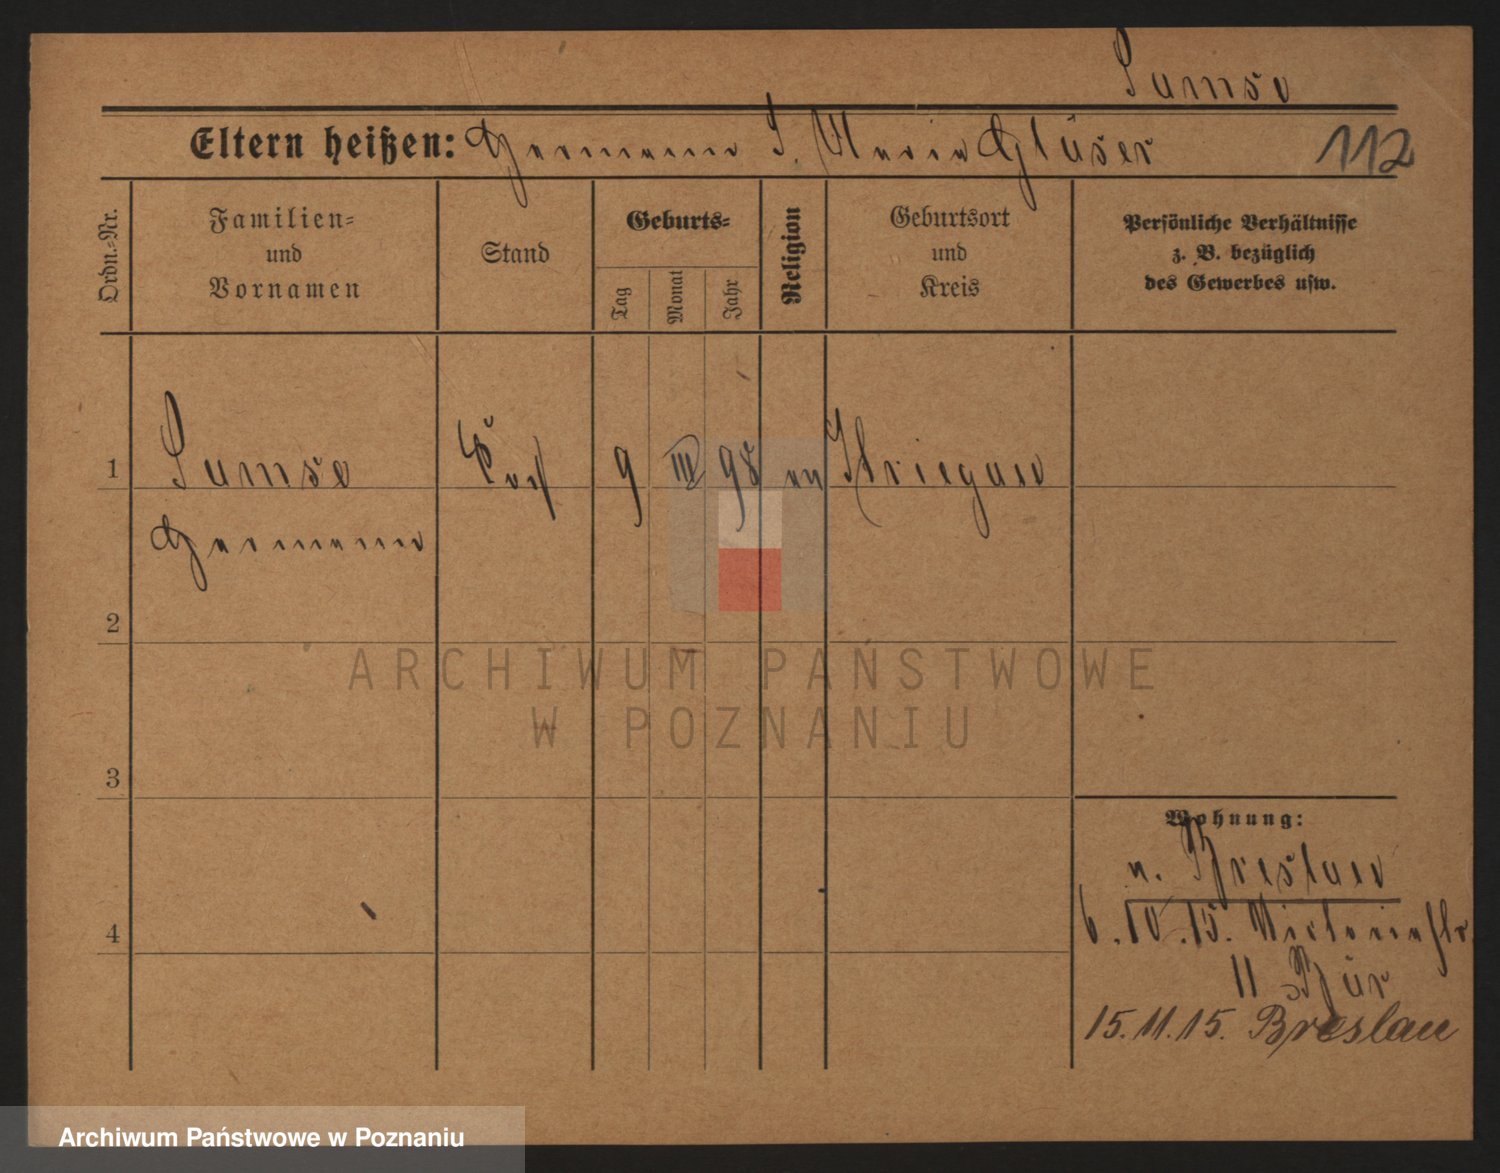 Sumse
Eltern heißen: Hermann S. Maria Gläser
112
Ordn.-Nr.
Familien-
und
Vornamen
Stand
Geburts-
Tag
Monat
Jahr
Religion
Geburtsort
und
Kreis
Persönliche Verhältnisse
z. B. bezüglich
des Gewerbes usw.
1
Sumse
9 III 98
Striegau
Hermann
2
ARCHIWUM PAŃSTWOWE
W POZNANIU
3
Wohnung:
n. Breslau
4
6.10.15. Victoriastr
11
15.11.15. Breslau
Archiwum Państwowe w Poznaniu